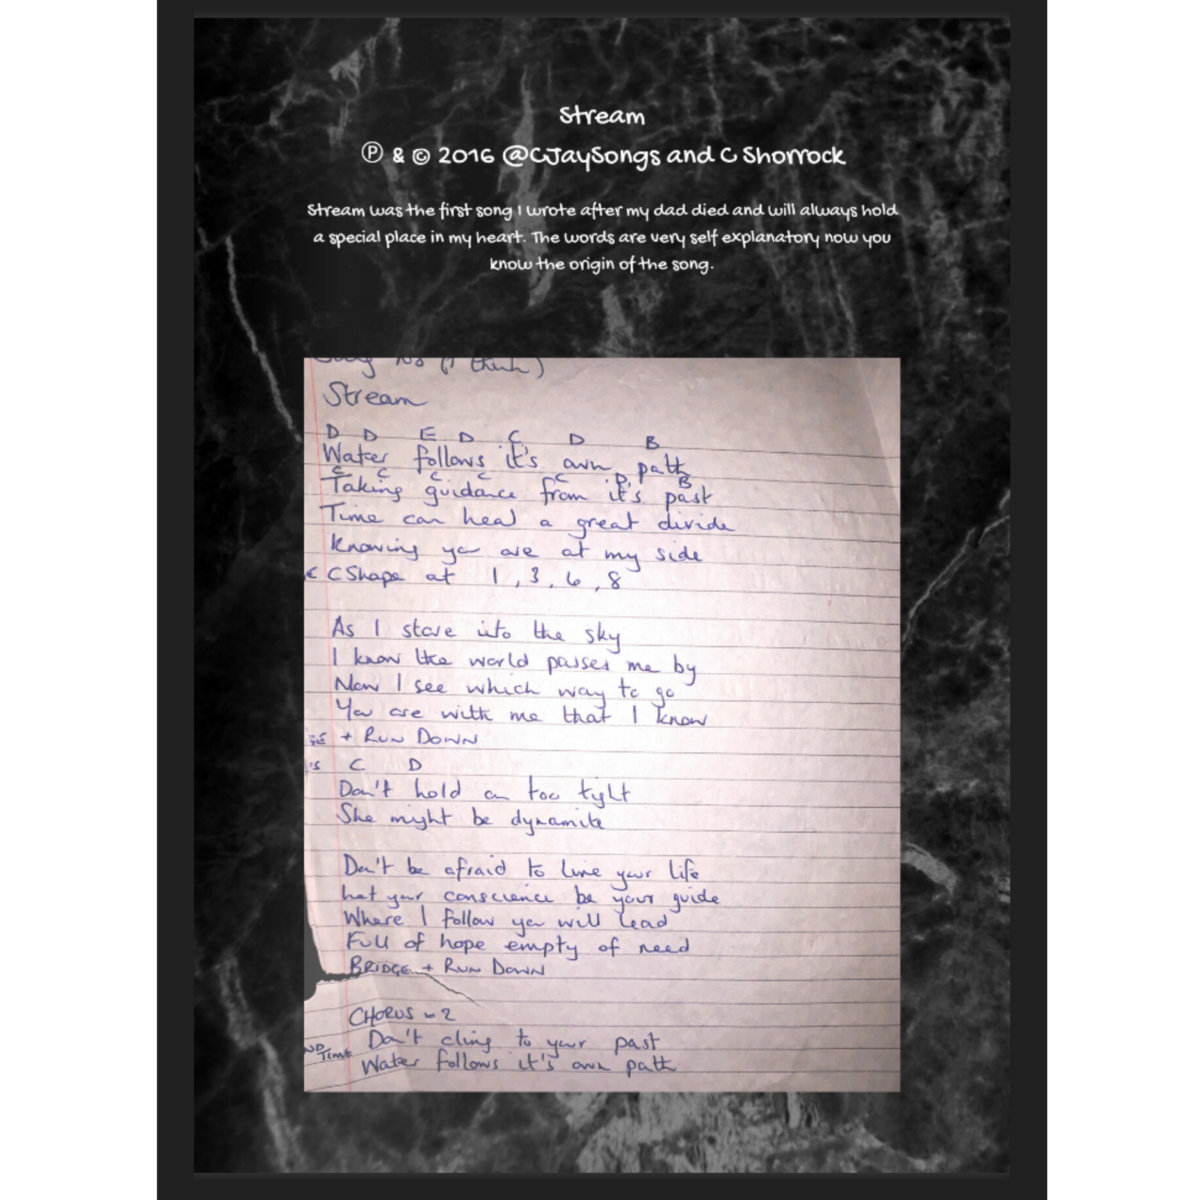 Stream
℗ & © 2016 @CJaySongs and C Shorrock
Stream was the first song I wrote after my dad died and will always hold
a special place in my heart. The words are very self explanatory now you
know the origin of the song.
(I think)
Stream
D D E D C D B
Water follows it's own path
C C C C C D B
Taking guidance from it's past
Time can heal a great divide
Knowing you are at my side
C Shape at 1, 3, 6, 8
As I stare into the sky
I know the world passes me by
Now I see which way to go
You are with me that I know
+ RUN DOWN
C D
Don't hold on too tight
She might be dynamite
Don't be afraid to live your life
Let your conscience be your guide
Where I follow you will lead
Full of hope empty of need
BRIDGE + RUN DOWN
CHORUS 2
Don't cling to your past
TIME
Water follows it's own path